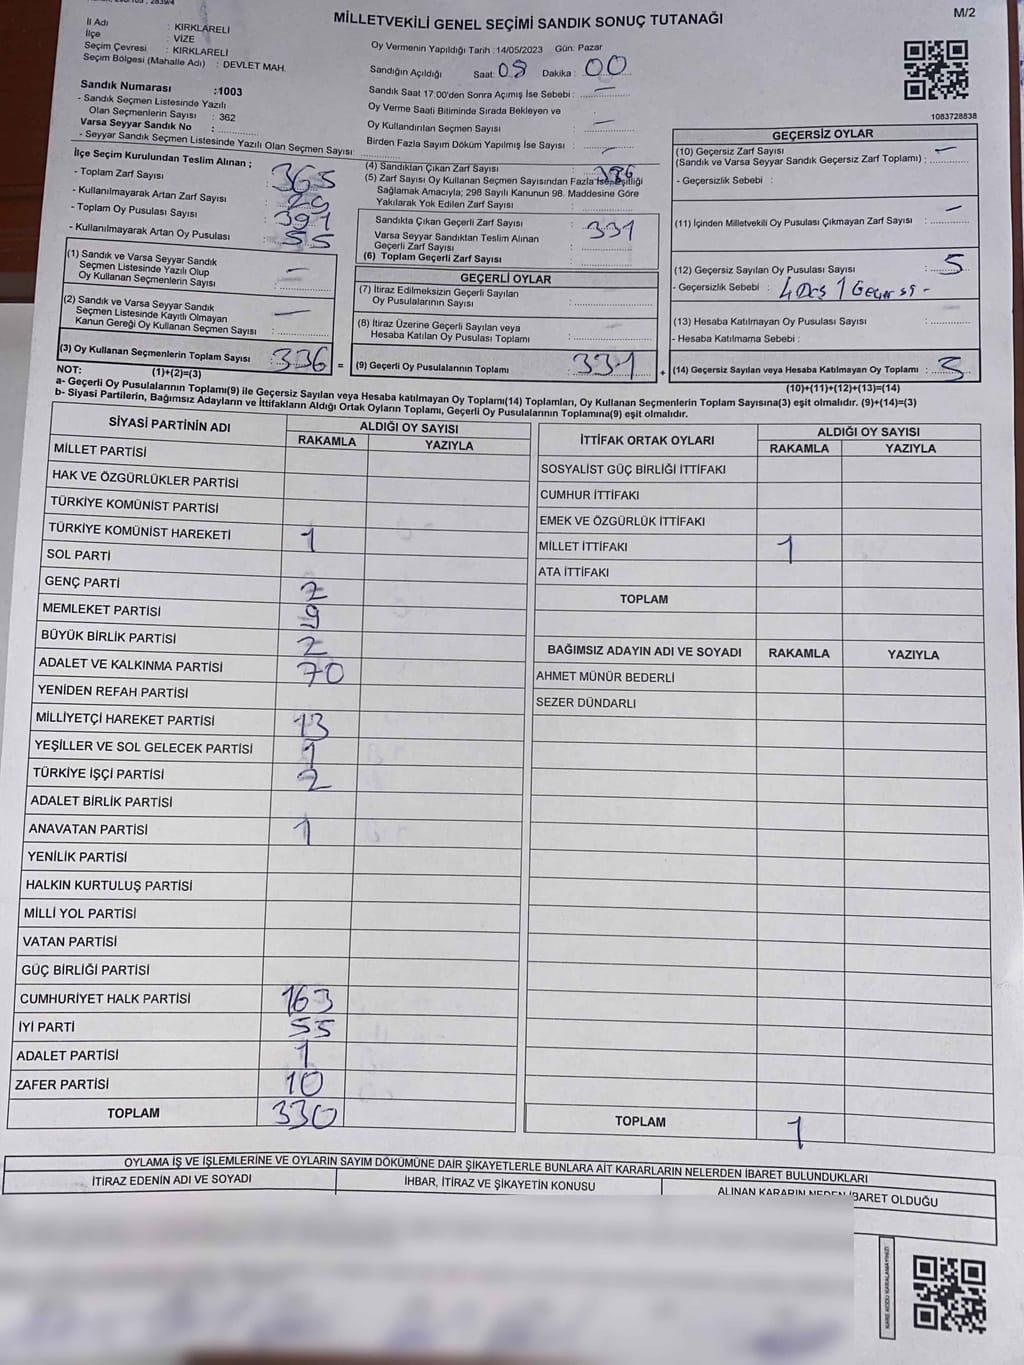 MİLLETVEKİLİ GENEL SEÇİMİ SANDIK SONUÇ TUTANAĞI
M/2
İl Adı : KIRKLARELİ
İlçe : VİZE
Seçim Çevresi : KIRKLARELİ
Seçim Bölgesi (Mahalle Adı) : DEVLET MAH.
Sandık Numarası :1003
- Sandık Seçmen Listesinde Yazılı
Olan Seçmenlerin Sayısı : 362
Varsa Seyyar Sandık No :
- Seyyar Sandık Seçmen Listesinde Yazılı Olan Seçmen Sayısı:
Oy Vermenin Yapıldığı Tarih :14/05/2023 Gün: Pazar
Sandığın Açıldığı Saat: 08 Dakika: 00
Sandık Saat 17:00'den Sonra Açımış İse Sebebi : —
Oy Verme Saati Bitiminde Sırada Bekleyen ve
Oy Kullandırılan Seçmen Sayısı : —
Birden Fazla Sayım Döküm Yapılmış İse Sayısı : —
1083728838
İlçe Seçim Kurulundan Teslim Alınan ;
- Toplam Zarf Sayısı : 365
- Kullanılmayarak Artan Zarf Sayısı : 29
- Toplam Oy Pusulası Sayısı : 391
- Kullanılmayarak Artan Oy Pusulası : 55
(1) Sandık ve Varsa Seyyar Sandık
Seçmen Listesinde Yazılı Olup
Oy Kullanan Seçmenlerin Sayısı : —
(2) Sandık ve Varsa Seyyar Sandık
Seçmen Listesinde Kayıtlı Olmayan
Kanun Gereği Oy Kullanan Seçmen Sayısı : —
(3) Oy Kullanan Seçmenlerin Toplam Sayısı : 336 =
(4) Sandıktan Çıkan Zarf Sayısı : 336
(5) Zarf Sayısı Oy Kullanan Seçmen Sayısından Fazla İse, Eşitliği
Sağlamak Amacıyla; 298 Sayılı Kanunun 98. Maddesine Göre
Yakılarak Yok Edilen Zarf Sayısı :
Sandıkta Çıkan Geçerli Zarf Sayısı : 331
Varsa Seyyar Sandıktan Teslim Alınan
Geçerli Zarf Sayısı :
(6) Toplam Geçerli Zarf Sayısı :
GEÇERLİ OYLAR
(7) İtiraz Edilmeksizin Geçerli Sayılan
Oy Pusulalarının Sayısı :
(8) İtiraz Üzerine Geçerli Sayılan veya
Hesaba Katılan Oy Pusulası Toplamı :
(9) Geçerli Oy Pusulalarının Toplamı : 331 +
GEÇERSİZ OYLAR
(10) Geçersiz Zarf Sayısı
(Sandık ve Varsa Seyyar Sandık Geçersiz Zarf Toplamı) : —
- Geçersizlik Sebebi :
(11) İçinden Milletvekili Oy Pusulası Çıkmayan Zarf Sayısı : —
(12) Geçersiz Sayılan Oy Pusulası Sayısı : 5
- Geçersizlik Sebebi : 4 1
(13) Hesaba Katılmayan Oy Pusulası Sayısı :
- Hesaba Katılmama Sebebi :
(14) Geçersiz Sayılan veya Hesaba Katılmayan Oy Toplamı : 5
NOT: (1)+(2)=(3)
(10)+(11)+(12)+(13)=(14)
a- Geçerli Oy Pusulalarının Toplamı(9) ile Geçersiz Sayılan veya Hesaba katılmayan Oy Toplamı(14) Toplamları, Oy Kullanan Seçmenlerin Toplam Sayısına(3) eşit olmalıdır. (9)+(14)=(3)
b- Siyasi Partilerin, Bağımsız Adayların ve İttifakların Aldığı Ortak Oyların Toplamı, Geçerli Oy Pusulalarının Toplamına(9) eşit olmalıdır.
SİYASİ PARTİNİN ADI ALDIĞI OY SAYISI
RAKAMLA YAZIYLA
MİLLET PARTİSİ
HAK VE ÖZGÜRLÜKLER PARTİSİ
TÜRKİYE KOMÜNİST PARTİSİ
TÜRKİYE KOMÜNİST HAREKETİ 1
SOL PARTİ
GENÇ PARTİ 2
MEMLEKET PARTİSİ 9
BÜYÜK BİRLİK PARTİSİ 2
ADALET VE KALKINMA PARTİSİ 70
YENİDEN REFAH PARTİSİ
MİLLİYETÇİ HAREKET PARTİSİ 13
YEŞİLLER VE SOL GELECEK PARTİSİ 1
TÜRKİYE İŞÇİ PARTİSİ 2
ADALET BİRLİK PARTİSİ
ANAVATAN PARTİSİ 1
YENİLİK PARTİSİ
HALKIN KURTULUŞ PARTİSİ
MİLLİ YOL PARTİSİ
VATAN PARTİSİ
GÜÇ BİRLİĞİ PARTİSİ
CUMHURİYET HALK PARTİSİ 163
İYİ PARTİ 55
ADALET PARTİSİ 1
ZAFER PARTİSİ 10
TOPLAM 330
İTTİFAK ORTAK OYLARI ALDIĞI OY SAYISI
RAKAMLA YAZIYLA
SOSYALİST GÜÇ BİRLİĞİ İTTİFAKI
CUMHUR İTTİFAKI
EMEK VE ÖZGÜRLÜK İTTİFAKI
MİLLET İTTİFAKI 1
ATA İTTİFAKI
TOPLAM
BAĞIMSIZ ADAYIN ADI VE SOYADI RAKAMLA YAZIYLA
AHMET MÜNÜR BEDERLİ
SEZER DÜNDARLI
TOPLAM 1
OYLAMA İŞ VE İŞLEMLERİNE VE OYLARIN SAYIM DÖKÜMÜNE DAİR ŞİKAYETLERLE BUNLARA AİT KARARLARIN NELERDEN İBARET BULUNDUKLARI
İTİRAZ EDENİN ADI VE SOYADI İHBAR, İTİRAZ VE ŞİKAYETİN KONUSU ALINAN KARARIN NEDEN İBARET OLDUĞU
KARE KODU KARALAMAYINIZ!